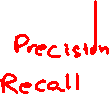 Precision
Recall